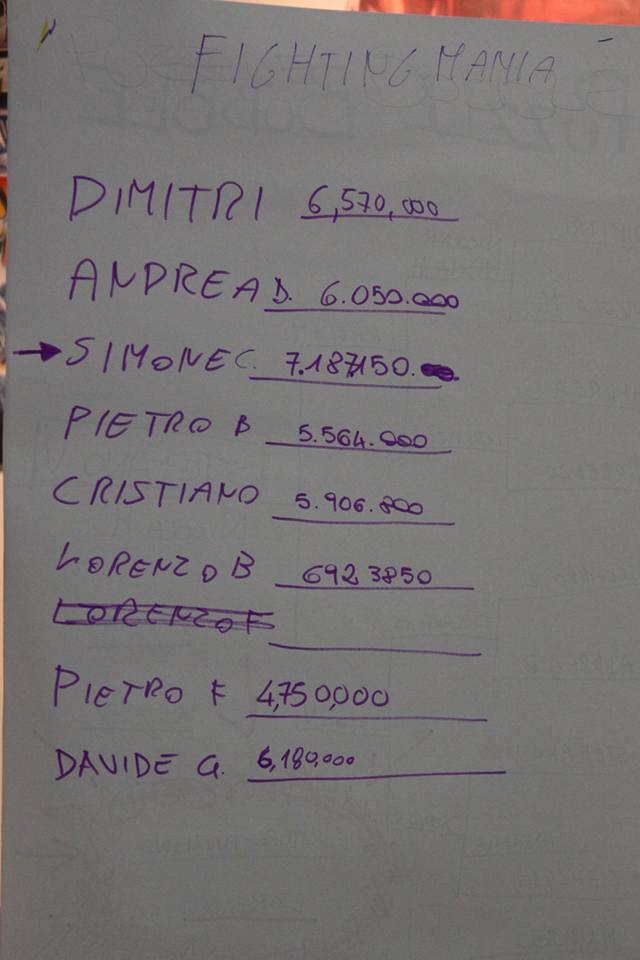 FIGHTINGMANIA
DIMITRI 6,570,000
ANDREA D. 6.050.000
SIMONE C. 7.187.150.
PIETRO B 5.564.000
CRISTIANO 5.906.800
LORENZO B 6923850
LORENZO F
PIETRO F 4,750,000
DAVIDE G. 6,180,000